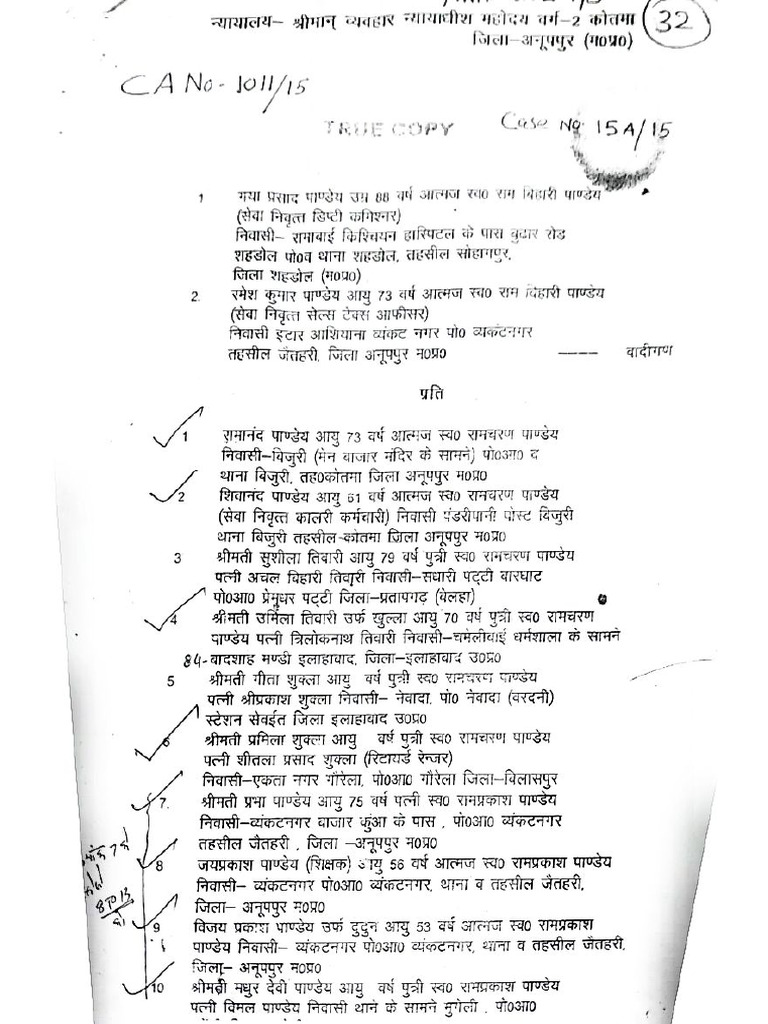 न्यायालय– श्रीमान् व्यवहार न्यायाधीश महोदय वर्ग–2 कोतमा
32
जिला–अनूपपुर (म०प्र०)
CA No - 1011/15
TRUE COPY
Case No. 15A/15
1 गया प्रसाद पाण्डेय उम्र 88 वर्ष आत्मज स्व० राम बिहारी पाण्डेय
(सेवा निवृत्त डिप्टी कमिश्नर)
निवासी– रामाबाई क्रिश्चियन हास्पिटल के पास बुढार रोड
शहडोल पो०व थाना शहडोल, तहसील सोहागपुर,
जिला शहडोल (म०प्र०)
2. रमेश कुमार पाण्डेय आयु 73 वर्ष आत्मज स्व० राम बिहारी पाण्डेय
(सेवा निवृत्त सेल्स टेक्स आफीसर)
निवासी इटार आशियाना व्यंकट नगर पो० व्यकंटनगर
तहसील जैतहरी, जिला अनूपपुर म०प्र० ---- वादीगण
प्रति
1 रामानंद पाण्डेय आयु 73 वर्ष आत्मज स्व० रामचरण पाण्डेय
निवासी–बिजुरी (मेन बाजार मंदिर के सामने) पो०आ० व
थाना बिजुरी, तह०कोतमा जिला अनूपपुर म०प्र०
2 शिवानंद पाण्डेय आयु 61 वर्ष आत्मज स्व० रामचरण पाण्डेय
(सेवा निवृत्त कालरी कर्मचारी) निवासी पंडरीपानी पोस्ट बिजुरी
थाना बिजुरी तहसील–कोतमा जिला अनूपपुर म०प्र०
3 श्रीमती सुशीला तिवारी आयु 79 वर्ष पुत्री स्व० रामचरण पाण्डेय
पत्नी अचल बिहारी तिवारी निवासी–सधारी पट्टी बारघाट
पो०आ० प्रेमधर पट्टी जिला–प्रतापगढ़ (बेलहा)
4 श्रीमती उर्मिला तिवारी उर्फ खुल्ला आयु 70 वर्ष पुत्री स्व० रामचरण
पाण्डेय पत्नी त्रिलोकनाथ तिवारी निवासी–चमेलीबाई धर्मशाला के सामने
84-बादशाह मण्डी इलाहाबाद, जिला–इलाहाबाद उ०प्र०
5 श्रीमती गीता शुक्ला आयु वर्ष पुत्री स्व० रामचरण पाण्डेय
पत्नी श्रीप्रकाश शुक्ला निवासी– नेवादा, पो० नेवादा (वरदनी)
स्टेशन सेवईत जिला इलाहाबाद उ०प्र०
6 श्रीमती प्रमिला शुक्ला आयु वर्ष पुत्री स्व० रामचरण पाण्डेय
पत्नी शीतला प्रसाद शुक्ला (रिटायर्ड रेन्जर)
निवासी–एकता नगर गौरेला, पो०आ० गौरेला जिला–विलासपुर
7. श्रीमती प्रभा पाण्डेय आयु 75 वर्ष पत्नी स्व० रामप्रकाश पाण्डेय
निवासी–व्यंकटनगर बाजार कुंआ के पास , पो०आ० व्यंकटनगर
तहसील जैतहरी , जिला –अनूपपुर म०प्र०
8 जयप्रकाश पाण्डेय (शिक्षक) आयु 56 वर्ष आत्मज स्व० रामप्रकाश पाण्डेय
निवासी– व्यंकटनगर पो०आ० व्यंकटनगर, थाना व तहसील जैतहरी,
8 TO 13
जिला– अनूपपुर म०प्र०
9 विजय प्रकाश पाण्डेय उर्फ दुदुन आयु 53 वर्ष आत्मज स्व० रामप्रकाश
पाण्डेय निवासी– व्यंकटनगर पो०आ० व्यंकटनगर, थाना व तहसील जैतहरी,
जिला– अनूपपुर म०प्र०
10 श्रीमती मधुर देवी पाण्डेय आयु वर्ष पुत्री स्व० रामप्रकाश पाण्डेय
पत्नी विमल पाण्डेय निवासी थाने के सामने मुगेली , पो०आ०